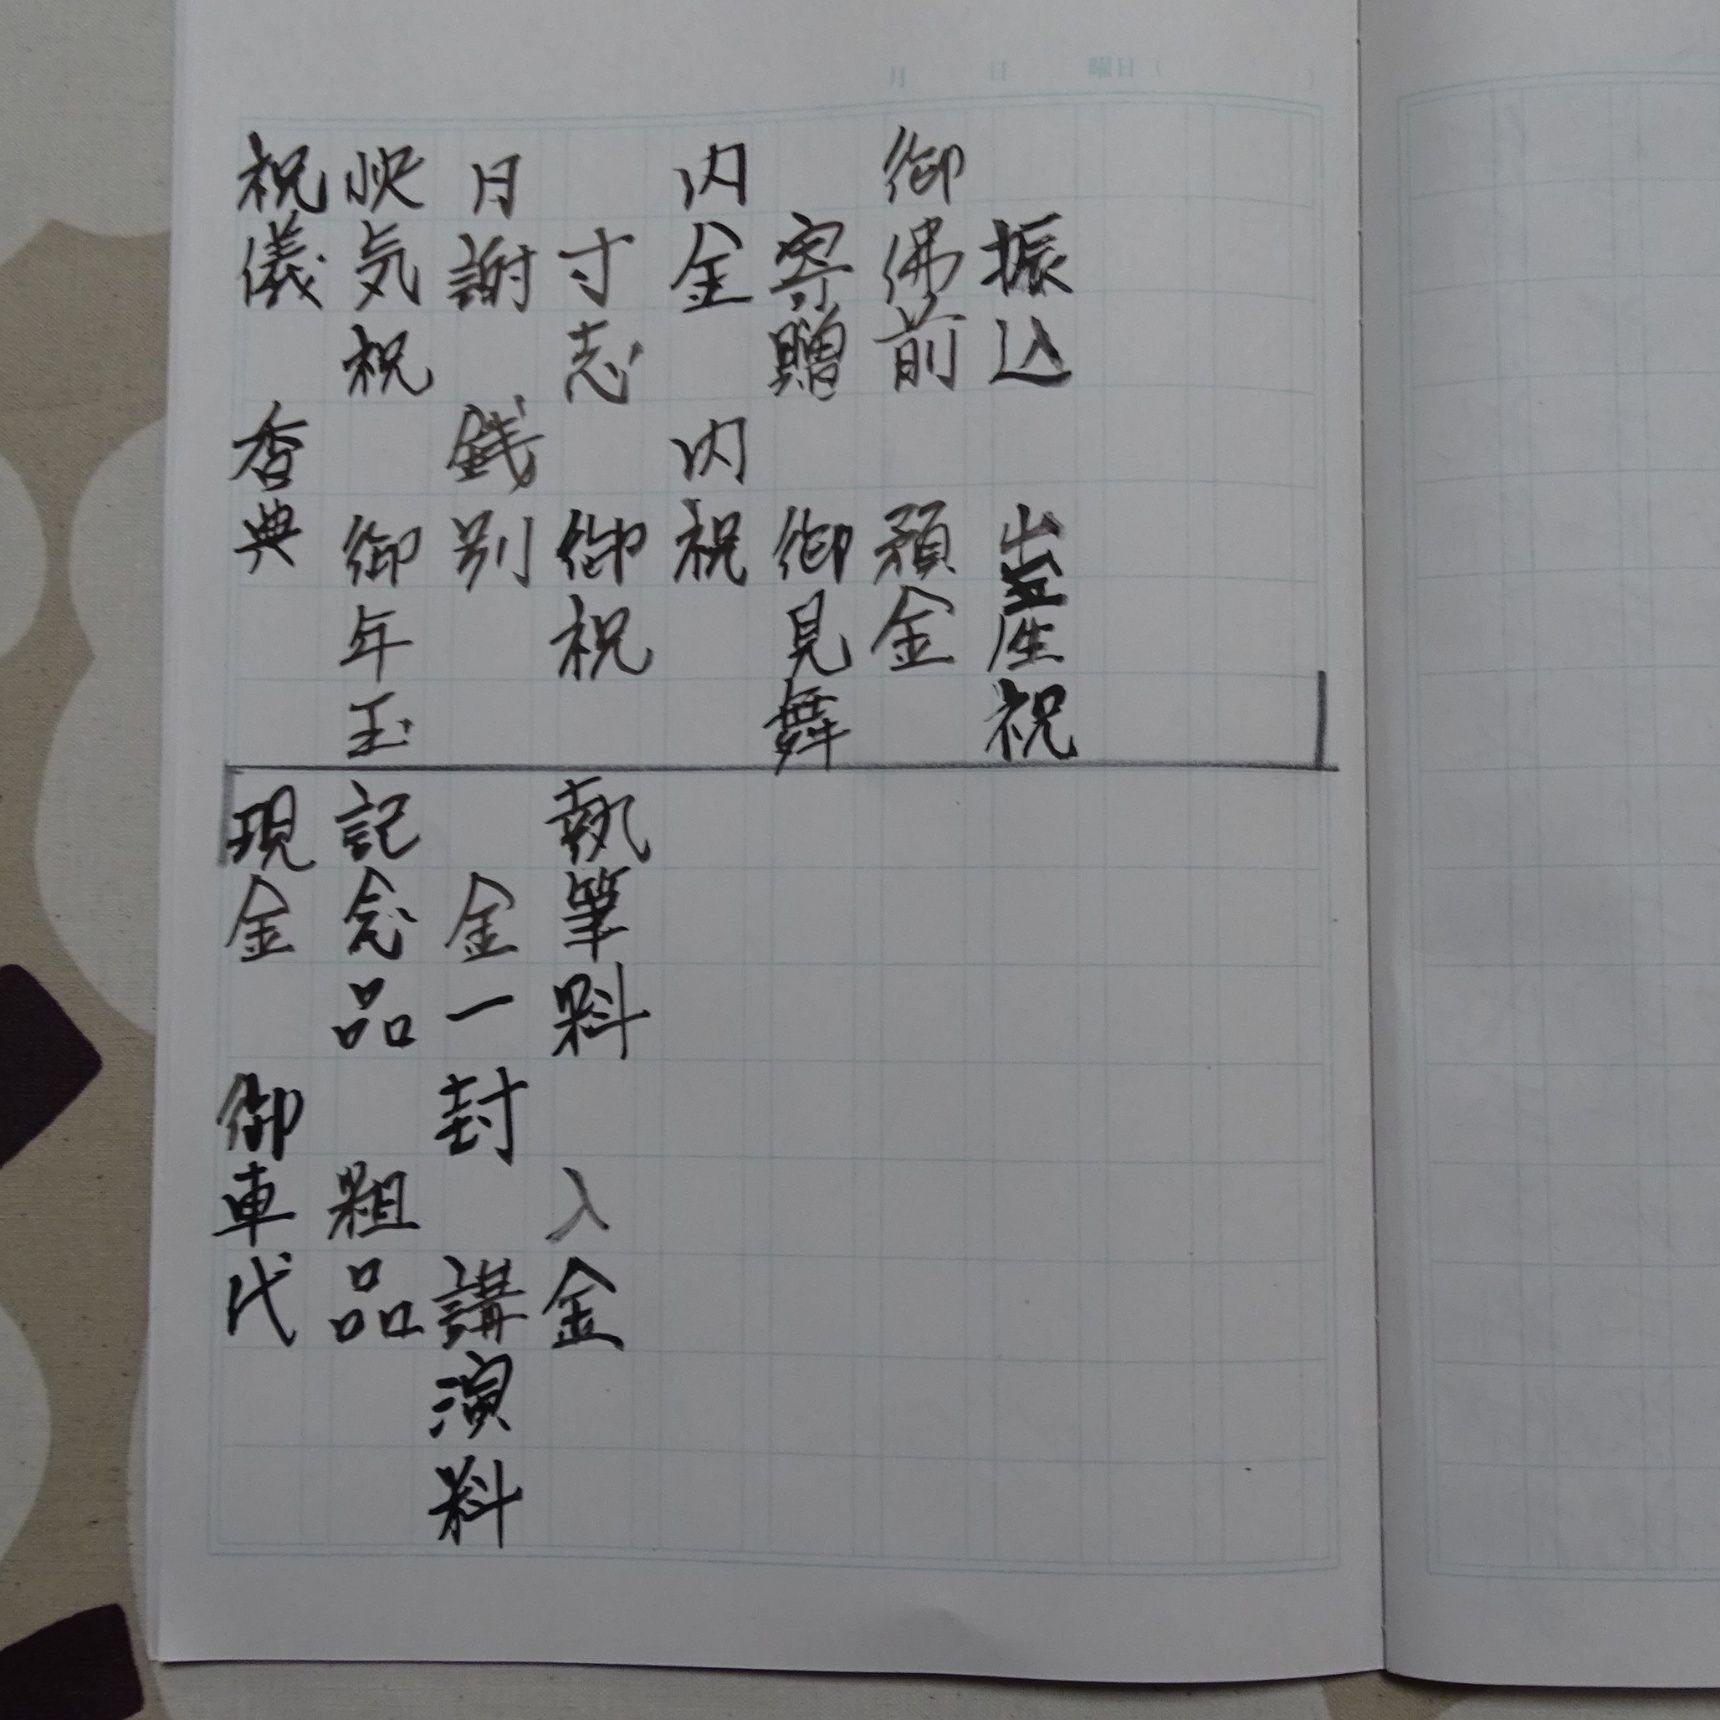 月　日　曜日（　　）
振込　出産祝
御佛前　預金
寄贈　御見舞
内金　内祝
寸志　御祝
月謝　銭別
快気祝　御年玉
祝儀　香典
執筆料　入金
金一封　講演料
記念品　粗品
現金　御車代